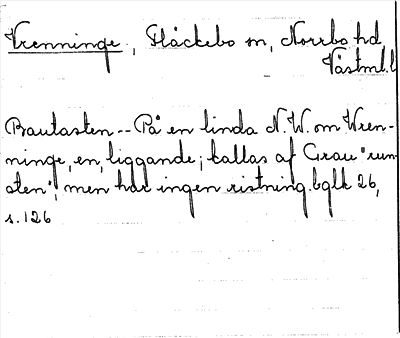 Vrenninge, Fläckebo sn, Norrbo hd
Västml.l
Bautasten -- På en linda N.W. om Vren-
ninge, en, liggande; kallas af Grau "run-
sten", men har ingen ristning. bglk 26,
s. 126